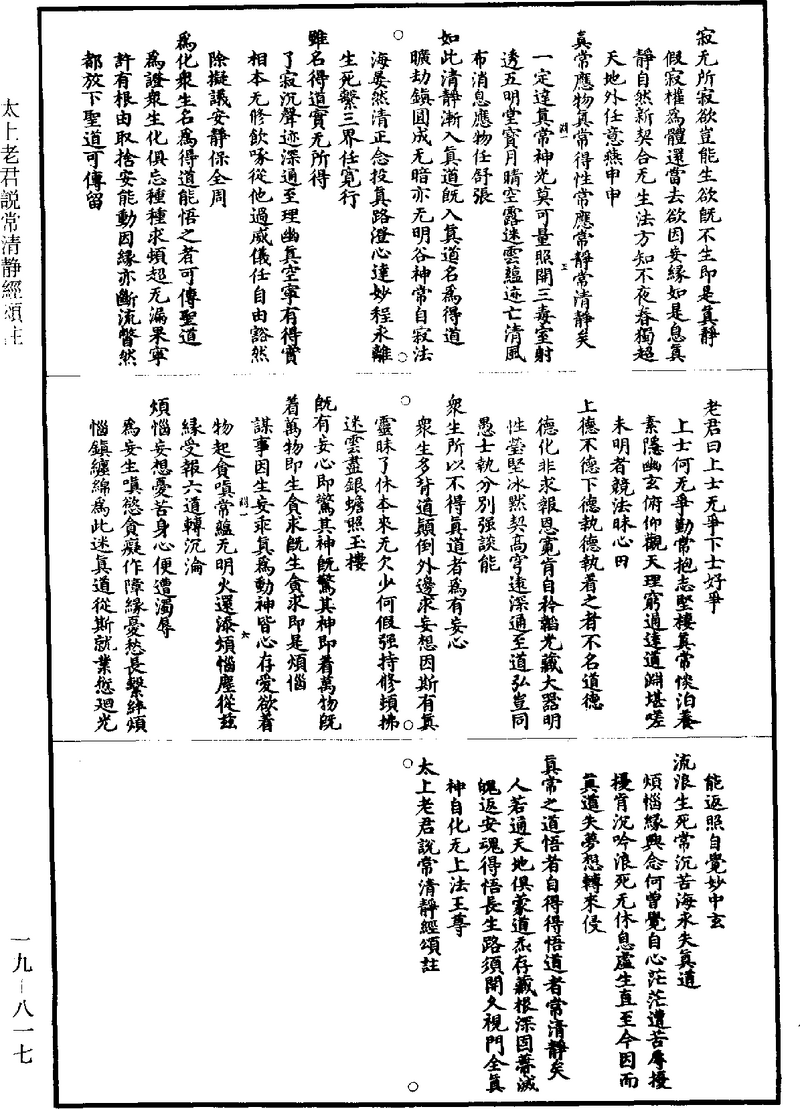 寂无所寂欲豈能生欲既不生即是真靜
假寂權為體還當去欲因妄緣如是息真
靜自然新契合无生法方知不夜春獨超
天地外任意燕申申
真常應物真常得性常應常靜常清靜矣
一定達真常神光莫可量照開三毒室射
透五明堂寶月晴空露迷雲蘊迹亡清風
布消息應物任舒張
如此清靜漸入真道既入真道名為得道
曠劫鎮圓成无暗亦无明谷神常自寂法
海晏然清正念投真路澄心達妙程永離
生死繫三界任寬行
雖名得道實无所得
了寂沉聲迹深通至理幽真空寧有得實
相本无修飲啄從他過威儀任自由豁然
除擬議安靜保全周
為化衆生名為得道能悟之者可傳聖道
為證衆生化俱忘種種求頓超无漏果寧
許有根由取捨安能動因緣亦斷流瞥然
都放下聖道可傳留
老君曰上士无爭下士好爭
上士何无爭勤常抱志堅棲真常惔泊養
素隱幽玄俯仰觀天理窮通達道淵堪嗟
未明者競法昧心田
上德不德下德執德執着之者不名道德
德化非求報恩寬肯自矜韜光藏大器明
性瑩堅冰黙契高穹遠深通至道弘豈同
愚士執分別强談能
衆生所以不得真道者為有妄心
衆生多背道顛倒外邊求妄想因斯有真
靈昧了休本來无欠少何假强持修頓拂
迷雲盡銀蟾照玉樓
既有妄心即驚其神既驚其神即着萬物既
着萬物即生貪求既生貪求即是煩惱
謀事因生妄乖真為動神皆心存愛欲着
物起貪嗔常蘊无明火還添煩惱塵從茲
緣受報六道轉沉淪
煩惱妄想憂苦身心便遭濁辱
為妄生嗔慾貪癡作障緣憂愁長繫絆煩
惱鎮纏綿為此迷真道從斯就業愆廻光
能返照自覺妙中玄
流浪生死常沉苦海永失真道
煩惱緣興念何曾覺自心茫茫遭苦辱擾
擾肯沉吟浪死无休息虛生直至今因而
真道失夢想轉來侵
真常之道悟者自得得悟道者常清靜矣
人若通天地俱蒙道炁存藏根深固蔕滅
魄返安魂得悟長生路須開久視門全真
神自化无上法王尊
太上老君說常清靜經頌註
太上老君說常清靜經頌註
一九－八一七